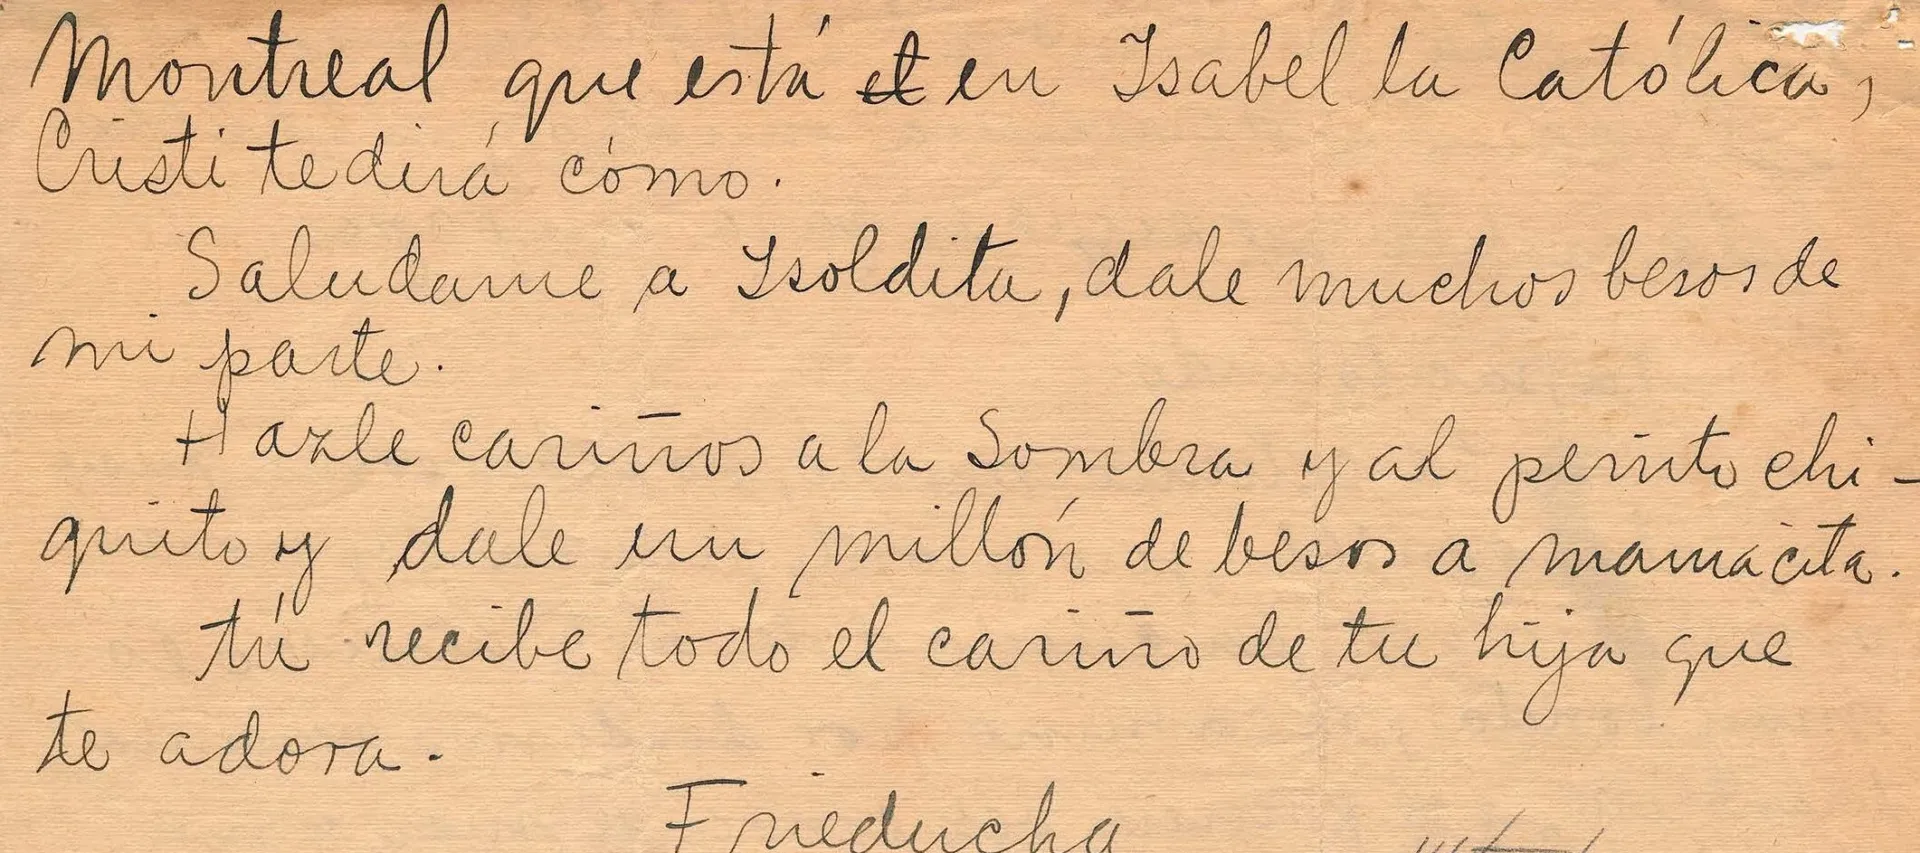 Montreal que está el en Isabel la Católica,
Cristi te dirá cómo.
Saludame a Isoldita, dale muchos besos de
mi parte.
Hazle cariños a la Sombra y al perrito chi-
quito y dale un millón de besos a mamacita.
tú recibe todo el cariño de tu hija que
te adora.
Frieducha